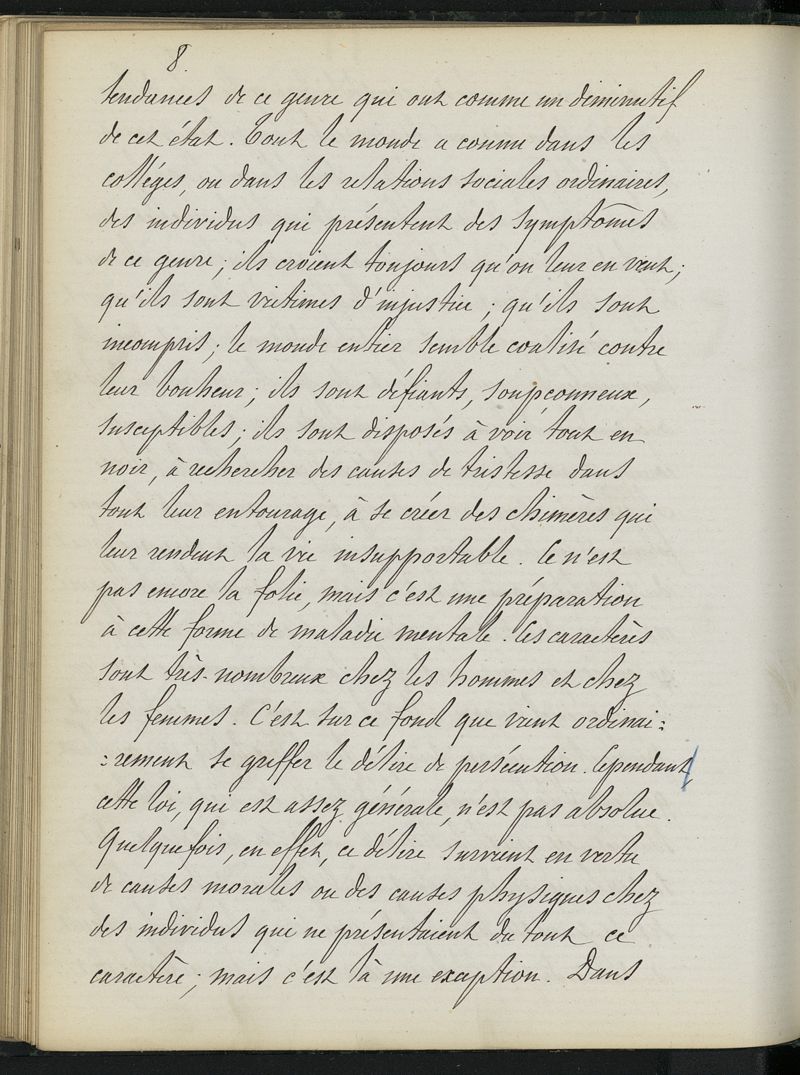 8
tendances de ce genre qui ont comme un diminutif
de cet état. Tout le monde a connu dans les
colléges, ou dans les relations sociales ordinaires,
des individus qui présentent des symptômes
de ce genre; ils croient toujours qu'on leur en veut;
qu'ils sont victimes d'injustice; qu'ils sont
incompris; le monde entier semble coalisé contre
leur bonheur; ils sont défiants, soupçonneux,
susceptibles; ils sont disposés à voir tout en
noir, à rechercher des causes de tristesse dans
tout leur entourage, à se créer des chimères qui
leur rendent la vie insupportable. Ce n'est
pas encore la folie, mais c'est une préparation
à cette forme de maladie mentale. Ces caractères
sont très-nombreux chez les hommes et chez
les femmes. C'est sur ce fond que vient ordinai:
:rement se greffer le délire de persécution. Cependant
cette loi, qui est assez générale, n'est pas absolue.
Quelquefois, en effet, ce délire survient en vertu
de causes morales ou des causes physiques chez
des individus qui ne présentaient du tout ce
caractère; mais c'est là une exception. Dans